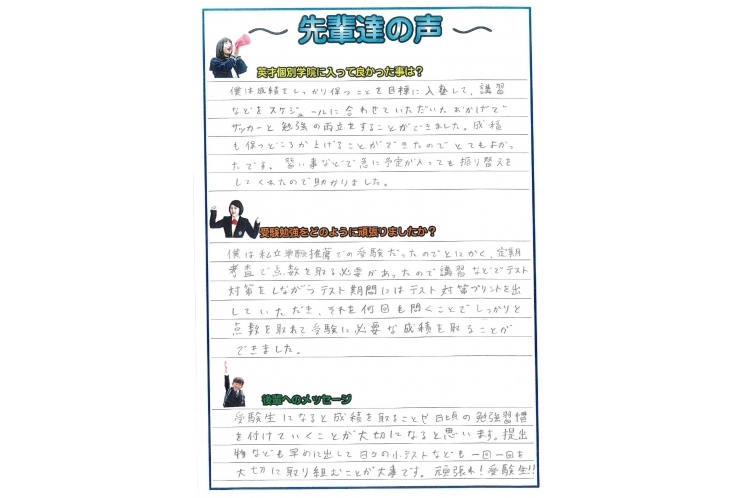 ～先輩達の声～
英才個別学院に入って良かった事は？
僕は成績をしっかり保つことを目標に入塾して、講習
などをスケジュールに合わせていただいたおかげで
サッカーと勉強の両立をすることができました。成績
も保つどころか上げることができたのでとてもよかっ
たです。習い事などで急に予定が入っても振り替えを
してくれたので助かりました。
受験勉強をどのように頑張りましたか？
僕は私立単願推薦での受験だったのでとにかく、定期
考査で点数を取る必要があったので講習などでテスト
対策をしながらテスト期間にはテスト対策プリントを出
していただき、それを何回も聞くことでしっかりと
点数を取れて受験に必要な成績を取ることが
できました。
後輩へのメッセージ
受験生になると成績を取ることや日頃の勉強習慣
を付けていくことが大切になると思います。提出
物なども早めに出して日々の小テストなども一回一回を
大切に取り組むことが大事です。頑張れ！受験生!!